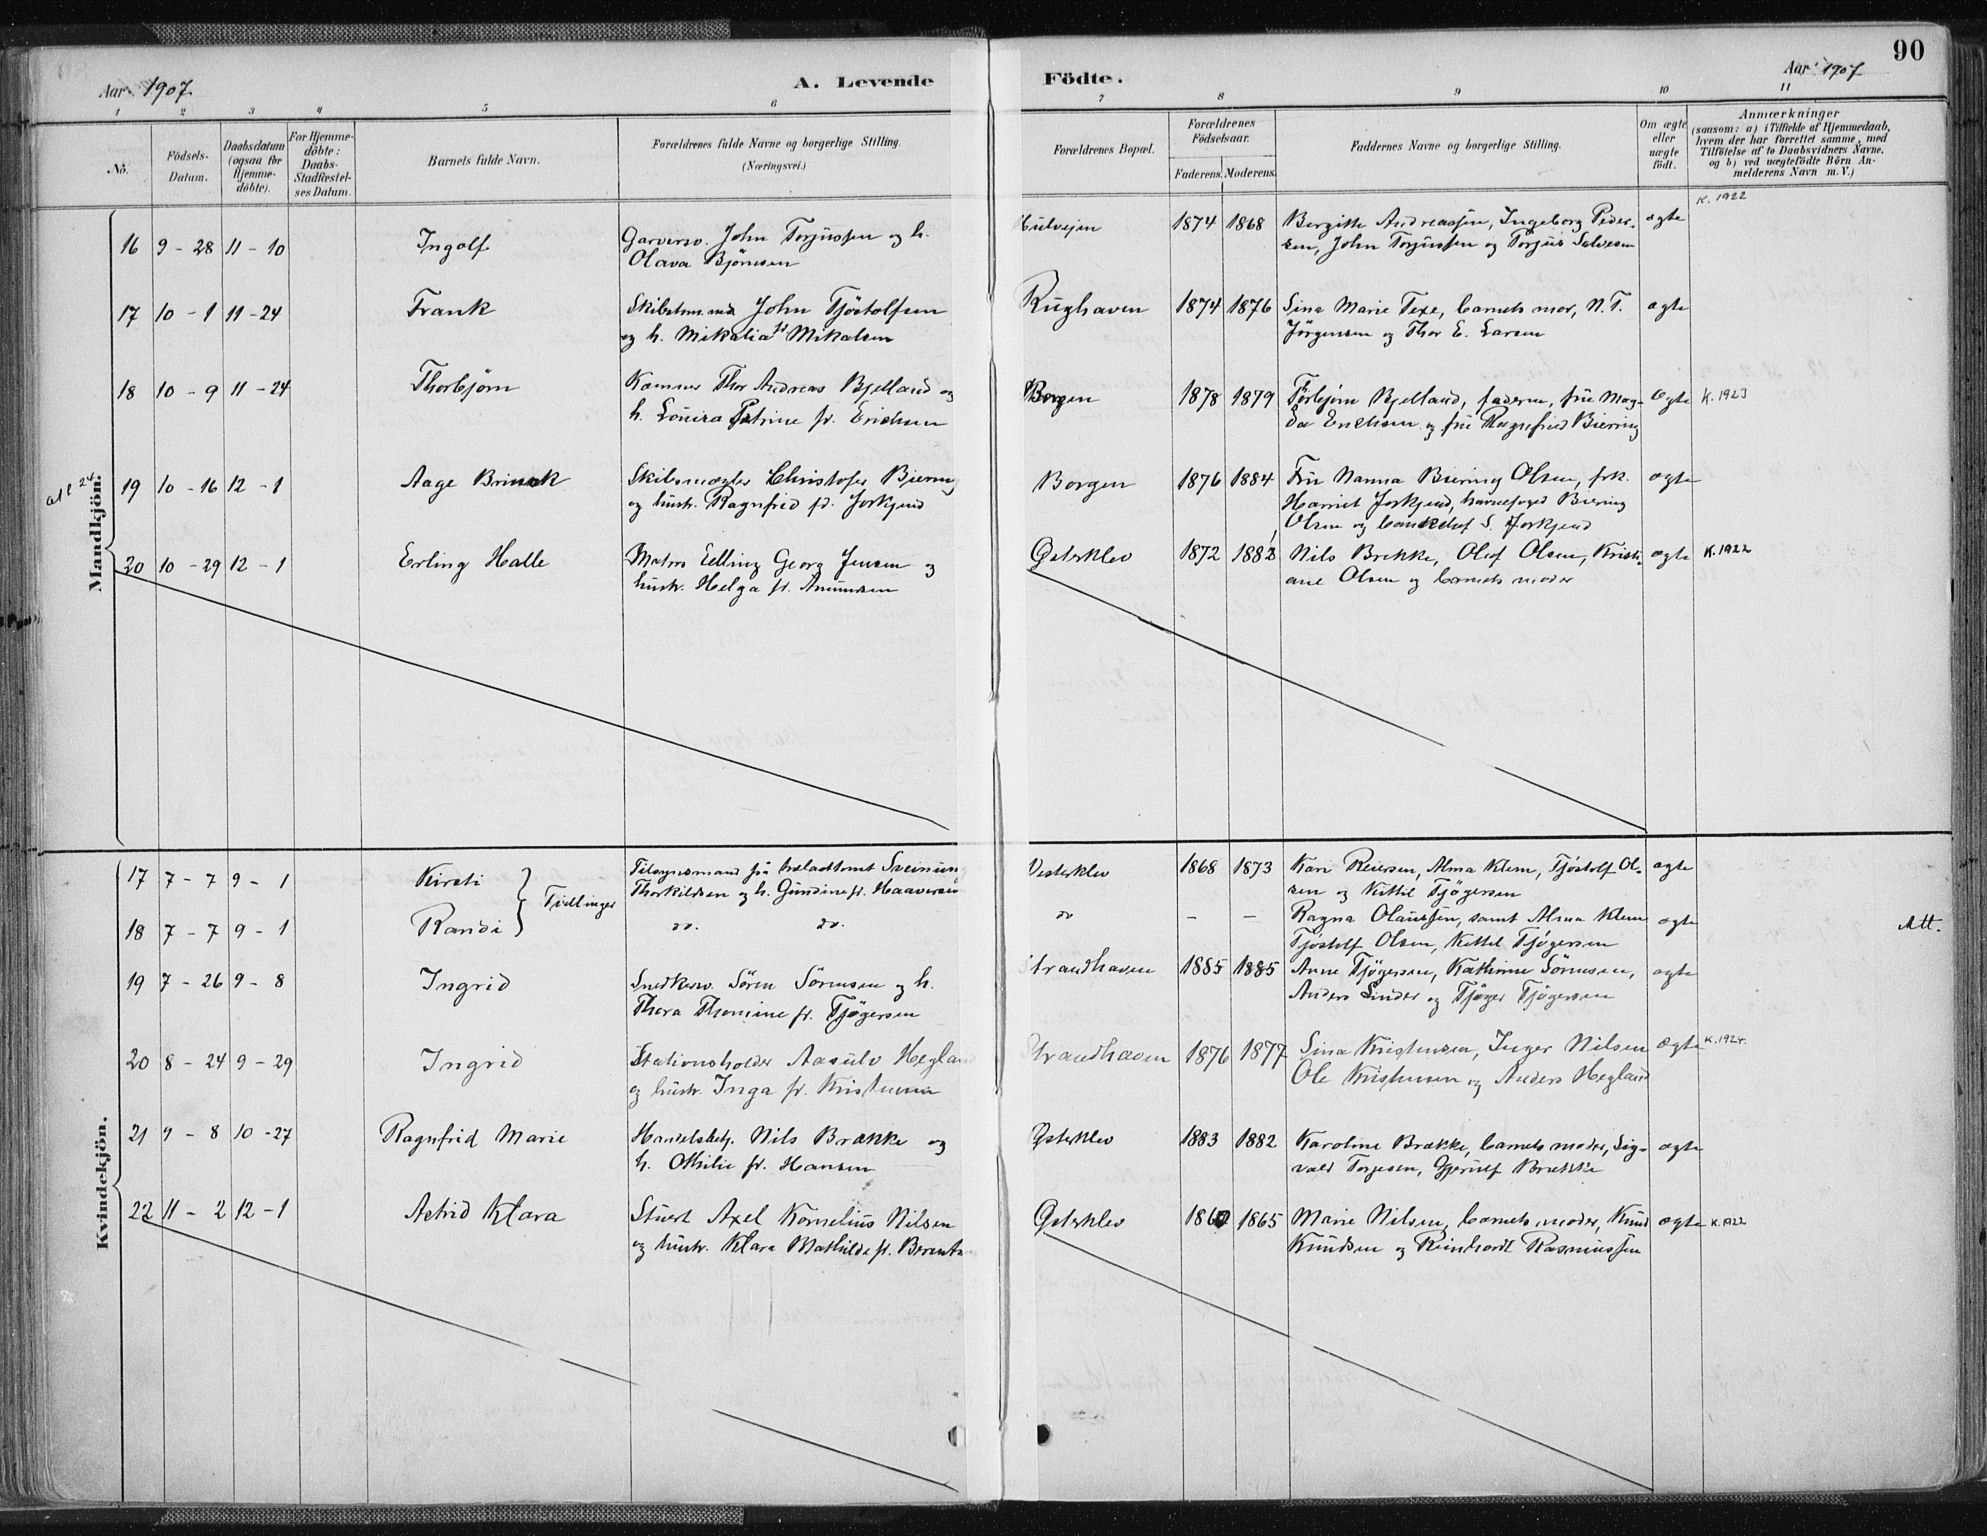 90
Aar 1907.
A. Levende
Födte.
Aar 1907
1 2 3 4 5 6 7 8 9 10 11
No.
Födsels-
Datum.
Daabsdatum
(ogsaa for
Hjemme-
döbte).
For Hjemme-
döbte:
Daabs-
Stadfæstel-
ses Datum.
Barnets fulde Navn.
Forældrenes fulde Navne og borgerlige Stilling.
(Næringsvei.)
Forældrenes Bopæl.
Forældrenes
Födselsaar.
Faderens. Moderens.
Faddernes Navne og borgerlige Stilling.
Om ægte
eller
uægte
født.
Anmærkninger
(saasom: a) i Tilfælde af Hjemmedaab,
hvem der har forrettet samme, med
Tilföielse af to Daabsvidners Navne,
og b) ved uægtefödte Börn An-
melderens Navn m. V.)
Mandkjön.
16 9 - 28 11 - 10 Ingolf Garversv. John Torjussen og h. 1874 1868 Bergitte Andreassen, Ingeborg Peder- ægte K. 1922
Olava Bjørnsen sen, John Torjussen og Torjus Salvesen
17 10 - 1 11 - 24 Frank John Tjøstolfsen Rughaven 1874 1876 Sina Marie Texe, barnets mor, N. T. ægte
og h. Mikalia Mikalsen Jörgensen og Thor E. Larsen
18 10 - 9 11 - 24 Thorbjørn Thor Andreas Bjelland og Borgen 1878 1879 Torbjørn Bjelland, faderen, fru Mag- ægte K. 1923
h. Lovisa Petrine f. Erichsen da Erichsen og fru Ragnfrid Biering
19 10 - 16 12 - 1 Aage Brinck Skibsmægler Christofer Biering Borgen 1876 1884 Fru Nanna Biering Olsen, frk. ægte
og hustr. Ragnfrid f. Jorkjend Harriet Jorkjend, havnefoged Biering
Olsen og S. Jorkjend
20 10 - 29 12 - 1 Erling Halle Matros Elling Georg Jensen og Østerklev 1872 Nils Brekke, Olof Olsen, Kristi- ægte K. 1922
hustr. Helga f. Anunsen ane Olsen og barnets moder
Kvindekjön.
17 7 - 7 9 - 1 Kirsti Tvillinger Tilsynsmand Vesterklev 1868 1873 Kari Reiersen, Alma Klem, Tjøstolf Ol- ægte
Thorkildsen og h. Gundine f. Haaversen sen og Kittil Tjøgersen
18 7 - 7 9 - 1 Randi do. do. do - - Ragna Olaussen, samt Alma Klem ægte Att.
Tjøstolf Olsen, Kittil Tjøgersen
19 7 - 26 9 - 8 Ingrid Snedkersv. Sören Sörensen og h. Strandhaven 1885 1885 Anne Tjøgersen, Kathrine Sörensen, ægte
Thora Thomine f. Tjøgersen Anders Linder og Tjøger Tjøgersen
20 8 - 24 9 - 29 Ingrid Stationsholder Aasulv Hegland Strandhaven 1876 1877 Sina Kristensen, Inger Nilsen ægte K. 1924.
og hustr. Inga f. Kristensen Ole Kristensen og Anders Hegland
21 9 - 8 10 - 27 Ragnfrid Marie Handelsbetj. Nils Brække og Østerklev 1883 1882 Karoline Brække, barnets moder, Sig- ægte
h. Othilie f. Hansen vald Torjesen, Gjerulf Brække
22 11 - 2 12 - 1 Astrid Klara Stuert Axel Kornelius Nilsen Østerklev 1865 Marie Nilsen, barnets moder, Knud ægte K. 1922
og hustr. Klara Mathilde f. Knudsen og Reinhardt Rasmussen